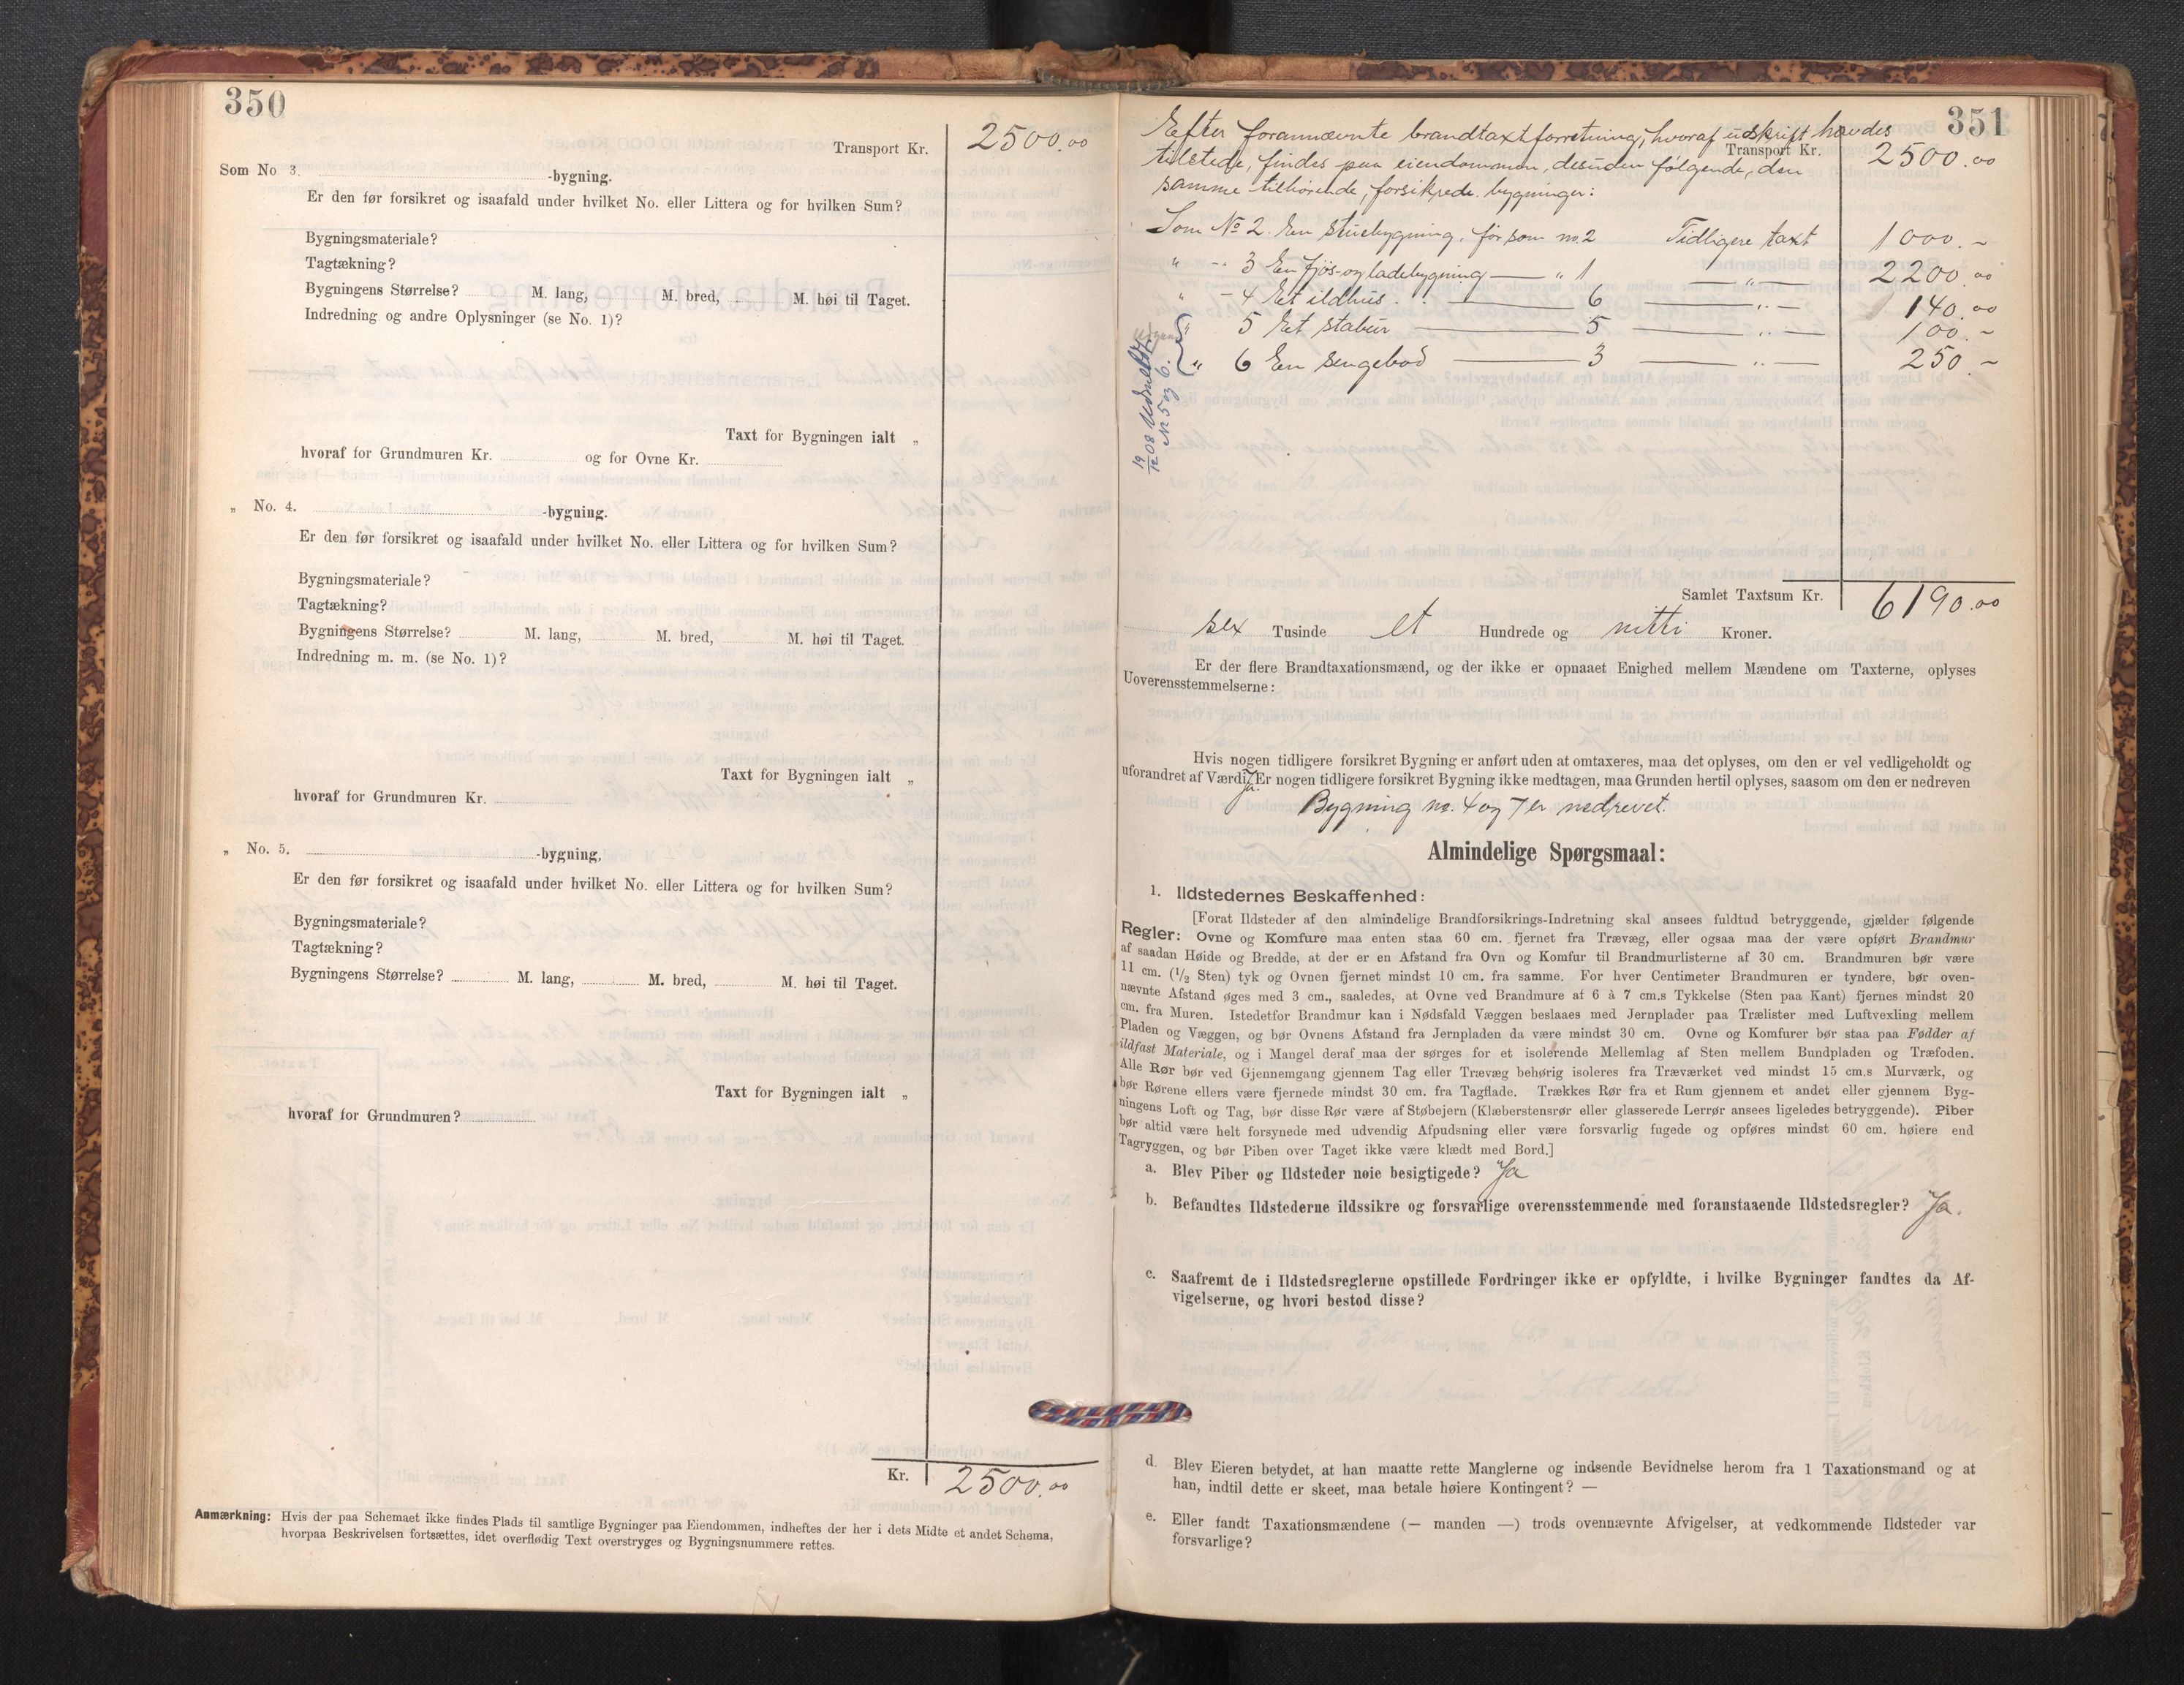 350
Transport Kr. 2500.00
Som No 3. -bygning.
Er den før forsikret og isaafald under hvilket No. eller Littera og for hvilken Sum?
Bygningsmateriale?
Tagtækning?
Bygningens Størrelse? M. lang, M. bred, M. høi til Taget.
Indredning og andre Oplysninger (se No. 1)?
Taxt for Bygningen ialt „
hvoraf for Grundmuren Kr. og for Ovne Kr.
„ No. 4. -bygning.
Er den før forsikret og isaafald under hvilket No. eller Littera og for hvilken Sum?
Bygningsmateriale?
Tagtækning?
Bygningens Størrelse? M. lang, M. bred, M. høi til Taget.
Indredning m. m. (se No. 1)?
Taxt for Bygningen ialt „
hvoraf for Grundmuren Kr.
„ No. 5. -bygning,
Er den før forsikret og isaafald under hvilket No. eller Littera og for hvilken Sum?
Bygningsmateriale?
Tagtækning?
Bygningens Størrelse? M. lang, M. bred, M. høi til Taget.
Taxt for Bygningen ialt „
hvoraf for Grundmuren?
Kr. 2500.00
Anmærkning: Hvis der paa Schemaet ikke findes Plads til samtlige Bygninger paa Eiendommen, indheftes der her i dets Midte et andet Schema,
hvorpaa Beskrivelsen fortsættes, idet overflødig Text overstryges og Bygningsnummere rettes.
351
Efter forannævnte brandtaxtforretning, hvoraf udskrift havdes
Transport Kr. 2500.00
tilstede, findes paa eiendommen, desuden følgende, den
samme tilhørende, forsikrede bygninger:
Som No 2. En stuebygning, før som no. 2 Tidligere taxt 1000.–
„ -- 3 En fjøs- og ladebygning — „ 1 „ 2200.00
„ – 4 Et ildhus . . — 6 — „ — 140.00
„ 5 Et stabur — 5 — „ — 100.–
„ 6 En sengebod — 3 — „ — 250.–
19/12 08 Udmeldt
N. 5 og 6.
Samlet Taxtsum Kr. 6190.00
sex Tusinde et Hundrede og nitti Kroner.
Er der flere Brandtaxationsmænd, og der ikke er opnaaet Enighed mellem Mændene om Taxterne, oplyses
Uoverensstemmelserne:
Hvis nogen tidligere forsikret Bygning er anført uden at omtaxeres, maa det oplyses, om den er vel vedligeholdt og
uforandret af Værdi? Er nogen tidligere forsikret Bygning ikke medtagen, maa Grunden hertil oplyses, saasom om den er nedreven
Ja. Bygning no. 4 og 7 er nedrevet.
Almindelige Spørgsmaal:
1. Ildstedernes Beskaffenhed:
[Forat Ildsteder af den almindelige Brandforsikrings-Indretning skal ansees fuldtud betryggende, gjælder følgende
Regler: Ovne og Komfure maa enten staa 60 cm. fjernet fra Trævæg, eller ogsaa maa der være opført Brandmur
af saadan Høide og Bredde, at der er en Afstand fra Ovn og Komfur til Brandmurlisterne af 30 cm. Brandmuren bør være
11 cm. (1/2 Sten) tyk og Ovnen fjernet mindst 10 cm. fra samme. For hver Centimeter Brandmuren er tyndere, bør oven-
nævnte Afstand øges med 3 cm., saaledes, at Ovne ved Brandmure af 6 à 7 cm.s Tykkelse (Sten paa Kant) fjernes mindst 20
cm. fra Muren. Istedetfor Brandmur kan i Nødsfald Væggen beslaaes med Jernplader paa Trælister med Luftvexling mellem
Pladen og Væggen, og bør Ovnens Afstand fra Jernpladen da være mindst 30 cm. Ovne og Komfurer bør staa paa Fødder af
ildfast Materiale, og i Mangel deraf maa der sørges for et isolerende Mellemlag af Sten mellem Bundpladen og Træfoden.
Alle Rør bør ved Gjennemgang gjennem Tag eller Trævæg behørig isoleres fra Træværket ved mindst 15 cm.s Murværk, og
bør Rørene ellers være fjernede mindst 30 cm. fra Tagflade. Trækkes Rør fra et Rum gjennem et andet eller gjennem Byg-
ningens Loft og Tag, bør disse Rør være af Støbejern (Klæberstensrør eller glasserede Lerrør ansees ligeledes betryggende). Piber
bør altid være helt forsynede med udvendig Afpudsning eller være forsvarlig fugede og opføres mindst 60 cm. høiere end
Tagryggen, og bør Piben over Taget ikke være klædt med Bord.]
a. Blev Piber og Ildsteder nøie besigtigede? Ja
b. Befandtes Ildstederne ildssikre og forsvarlige overensstemmende med foranstaaende Ildstedsregler? Ja.
c. Saafremt de i Ildstedsreglerne opstillede Fordringer ikke er opfyldte, i hvilke Bygninger fandtes da Af-
vigelserne, og hvori bestod disse?
d. Blev Eieren betydet, at han maatte rette Manglerne og indsende Bevidnelse herom fra 1 Taxationsmand og at
han, indtil dette er skeet, maa betale høiere Kontingent? —
e. Eller fandt Taxationsmændene (— manden —) trods ovennævnte Afvigelser, at vedkommende Ildsteder var
forsvarlige?